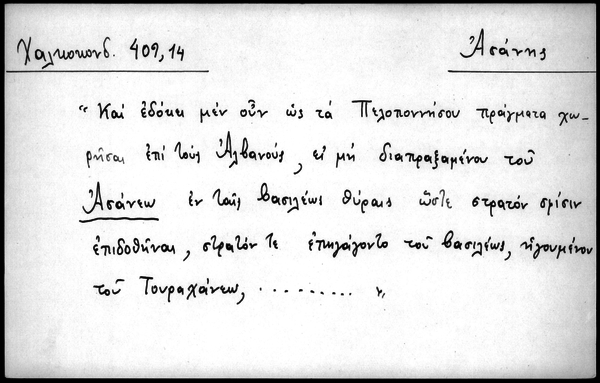 Χαλκοκονδ. 409,14
Ἀσάνης
“ Καί ἐδόκει μέν οὖν ὡς τά Πελοποννήσου πράγματα χω-
ρῆσαι ἐπί τούς Ἀλβανούς, εἰ μή διαπραξαμένου τοῦ
Ἀσάνεω ἐν ταῖς βασιλέως θύραις ὥστε στρατόν σφίσιν
ἐπιδοθῆναι, στρατόν τε ἐπηγάγοντο τοῦ βασιλέως, ἡγουμένου
τοῦ Τουραχάνεω, ......... ”